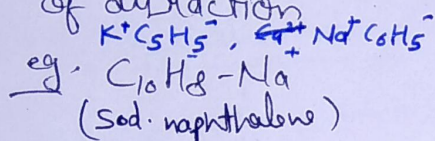 of attraction
K⁺C5H5⁻, Na⁺C6H5⁻
eg. C10H8⁻-Na⁺
(Sod. naphthalene)